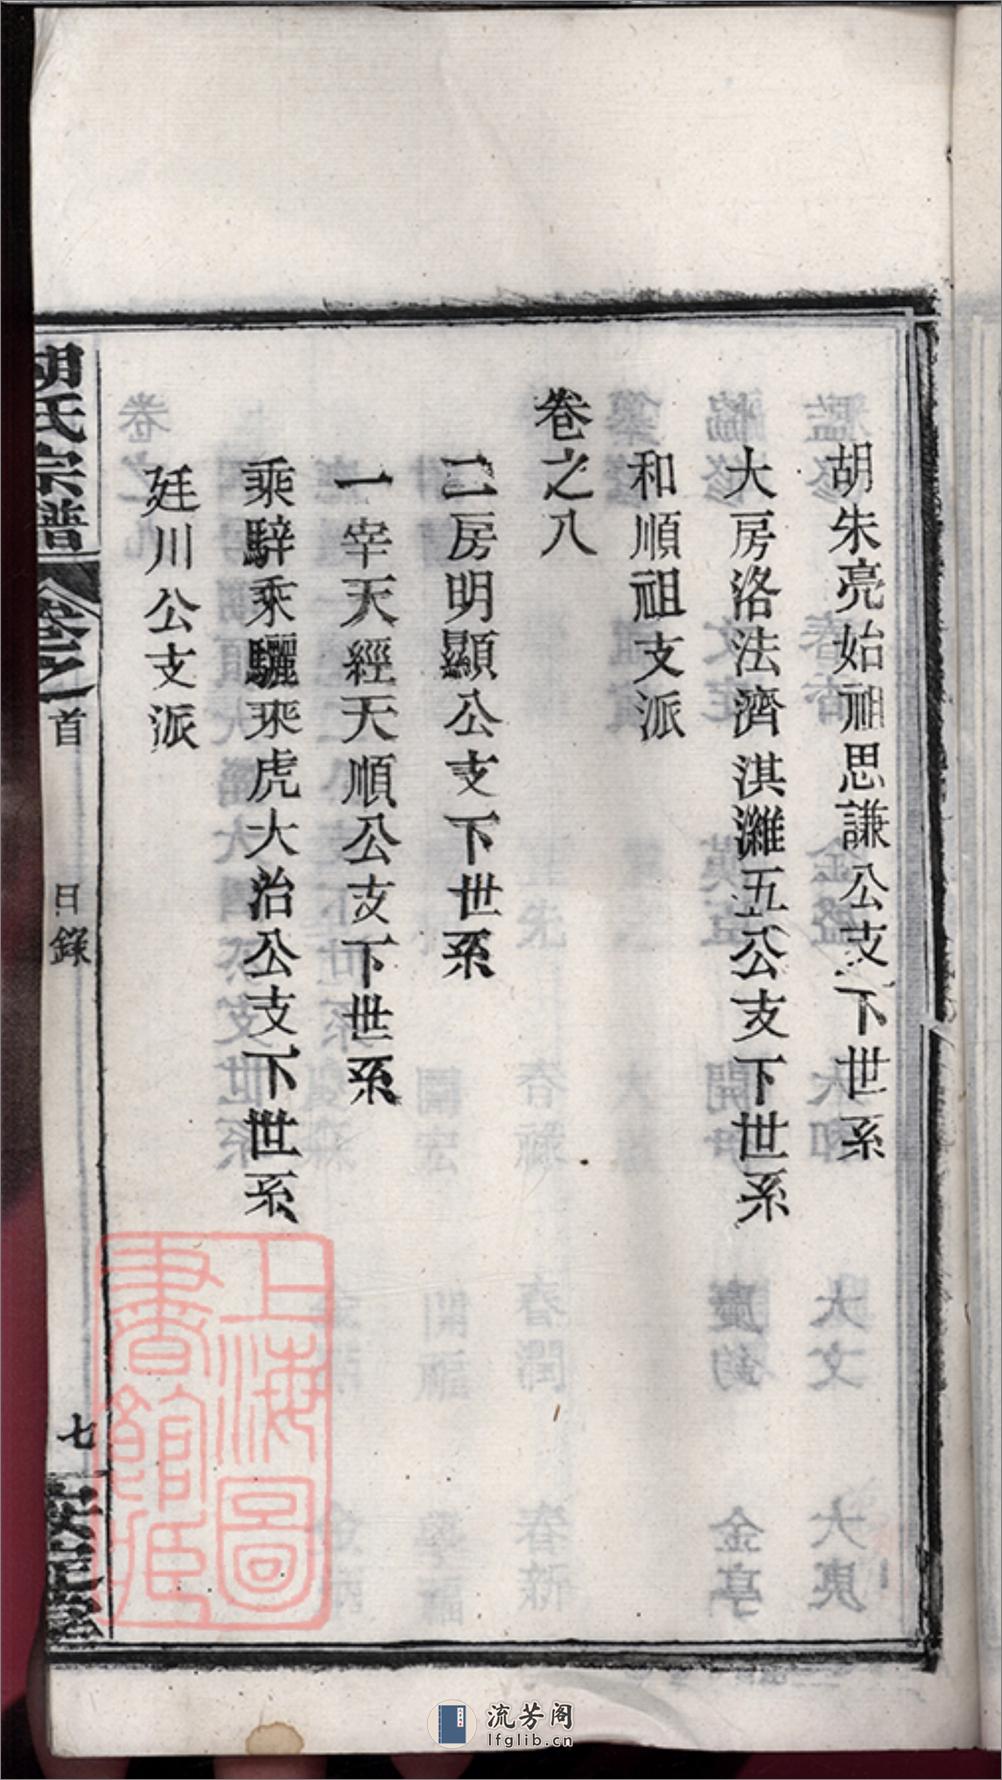 胡朱亮始祖思謙公支下世系
大房洛法濟淇灘五公支下世系
和順祖支派
卷之八
二房明顯公支下世系
一宰天經天順公支下世系
乘騂乘驪乘虎大治公支下世系
廷川公支派
胡氏宗譜
卷之
首
目錄
七
安定堂
上海圖書館藏
流芳阁
lfglib.cn